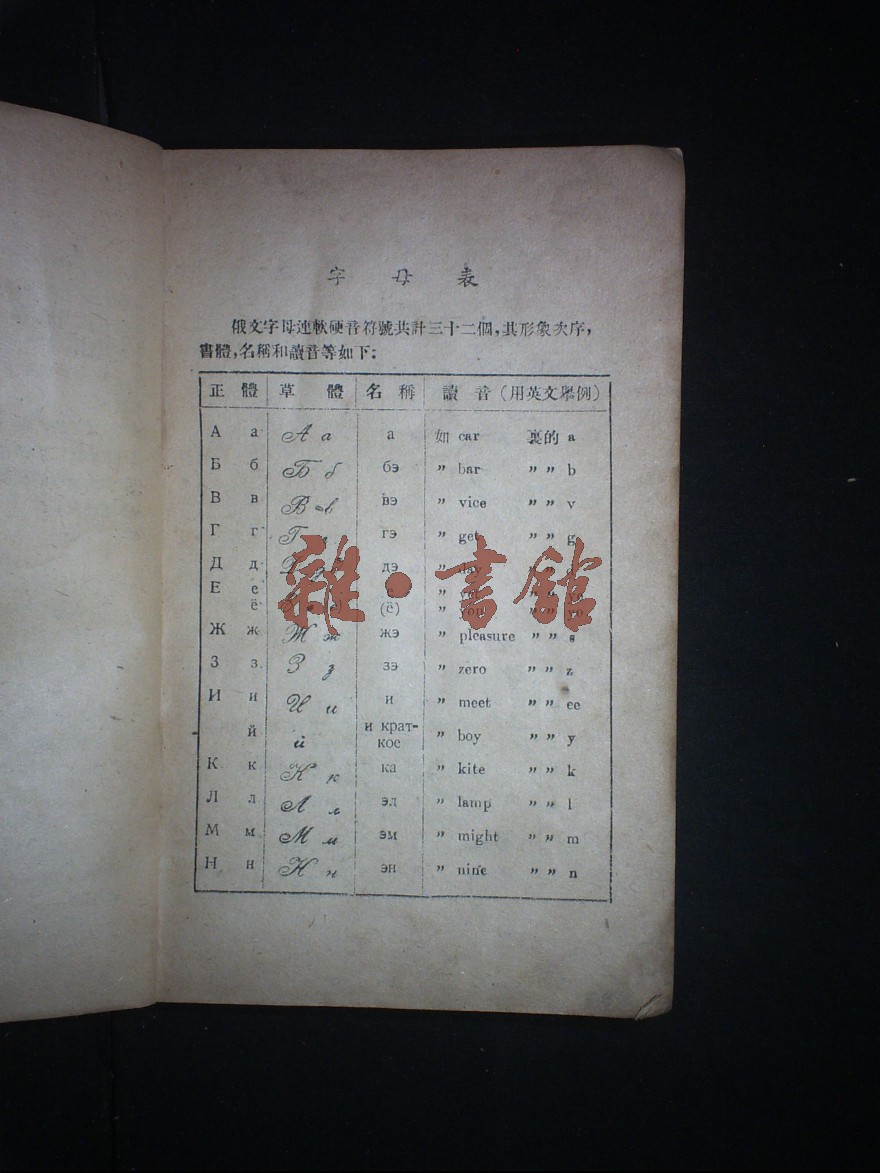 字母表
俄文字母連軟硬音符號共計三十二個,其形象次序,
書體,名稱和讀音等如下:
正體 草體 名稱 讀音(用英文舉例)
А а А а а 如 car 裏的 a
Б б Б б бэ ” bar ” ” b
В в В в вэ ” vice ” ” v
Г г Г гэ ” get ” ” g
Д д Д дэ ” day ” ”
Е е
ё (ё) ” ” ” yo
Ж ж Ж ж жэ ” pleasure ” ” s
З з З з зэ ” zero ” ” z
И и И и и ” meet ” ” ee
й й и крат-
кое ” boy ” ” y
К к К к ка ” kite ” ” k
Л л Л л эл ” lamp ” ” l
М м М м эм ” might ” ” m
Н н Н н эн ” nine ” ” n
雜·書館